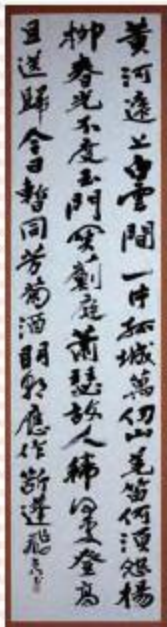 黄河遠上白雲間一片孤城萬仞山羌笛何須怨楊
柳春光不度玉門関薊庭蕭瑟故人稀何處登高
且送歸今日暫同芳菊酒明朝應作斷蓬飛